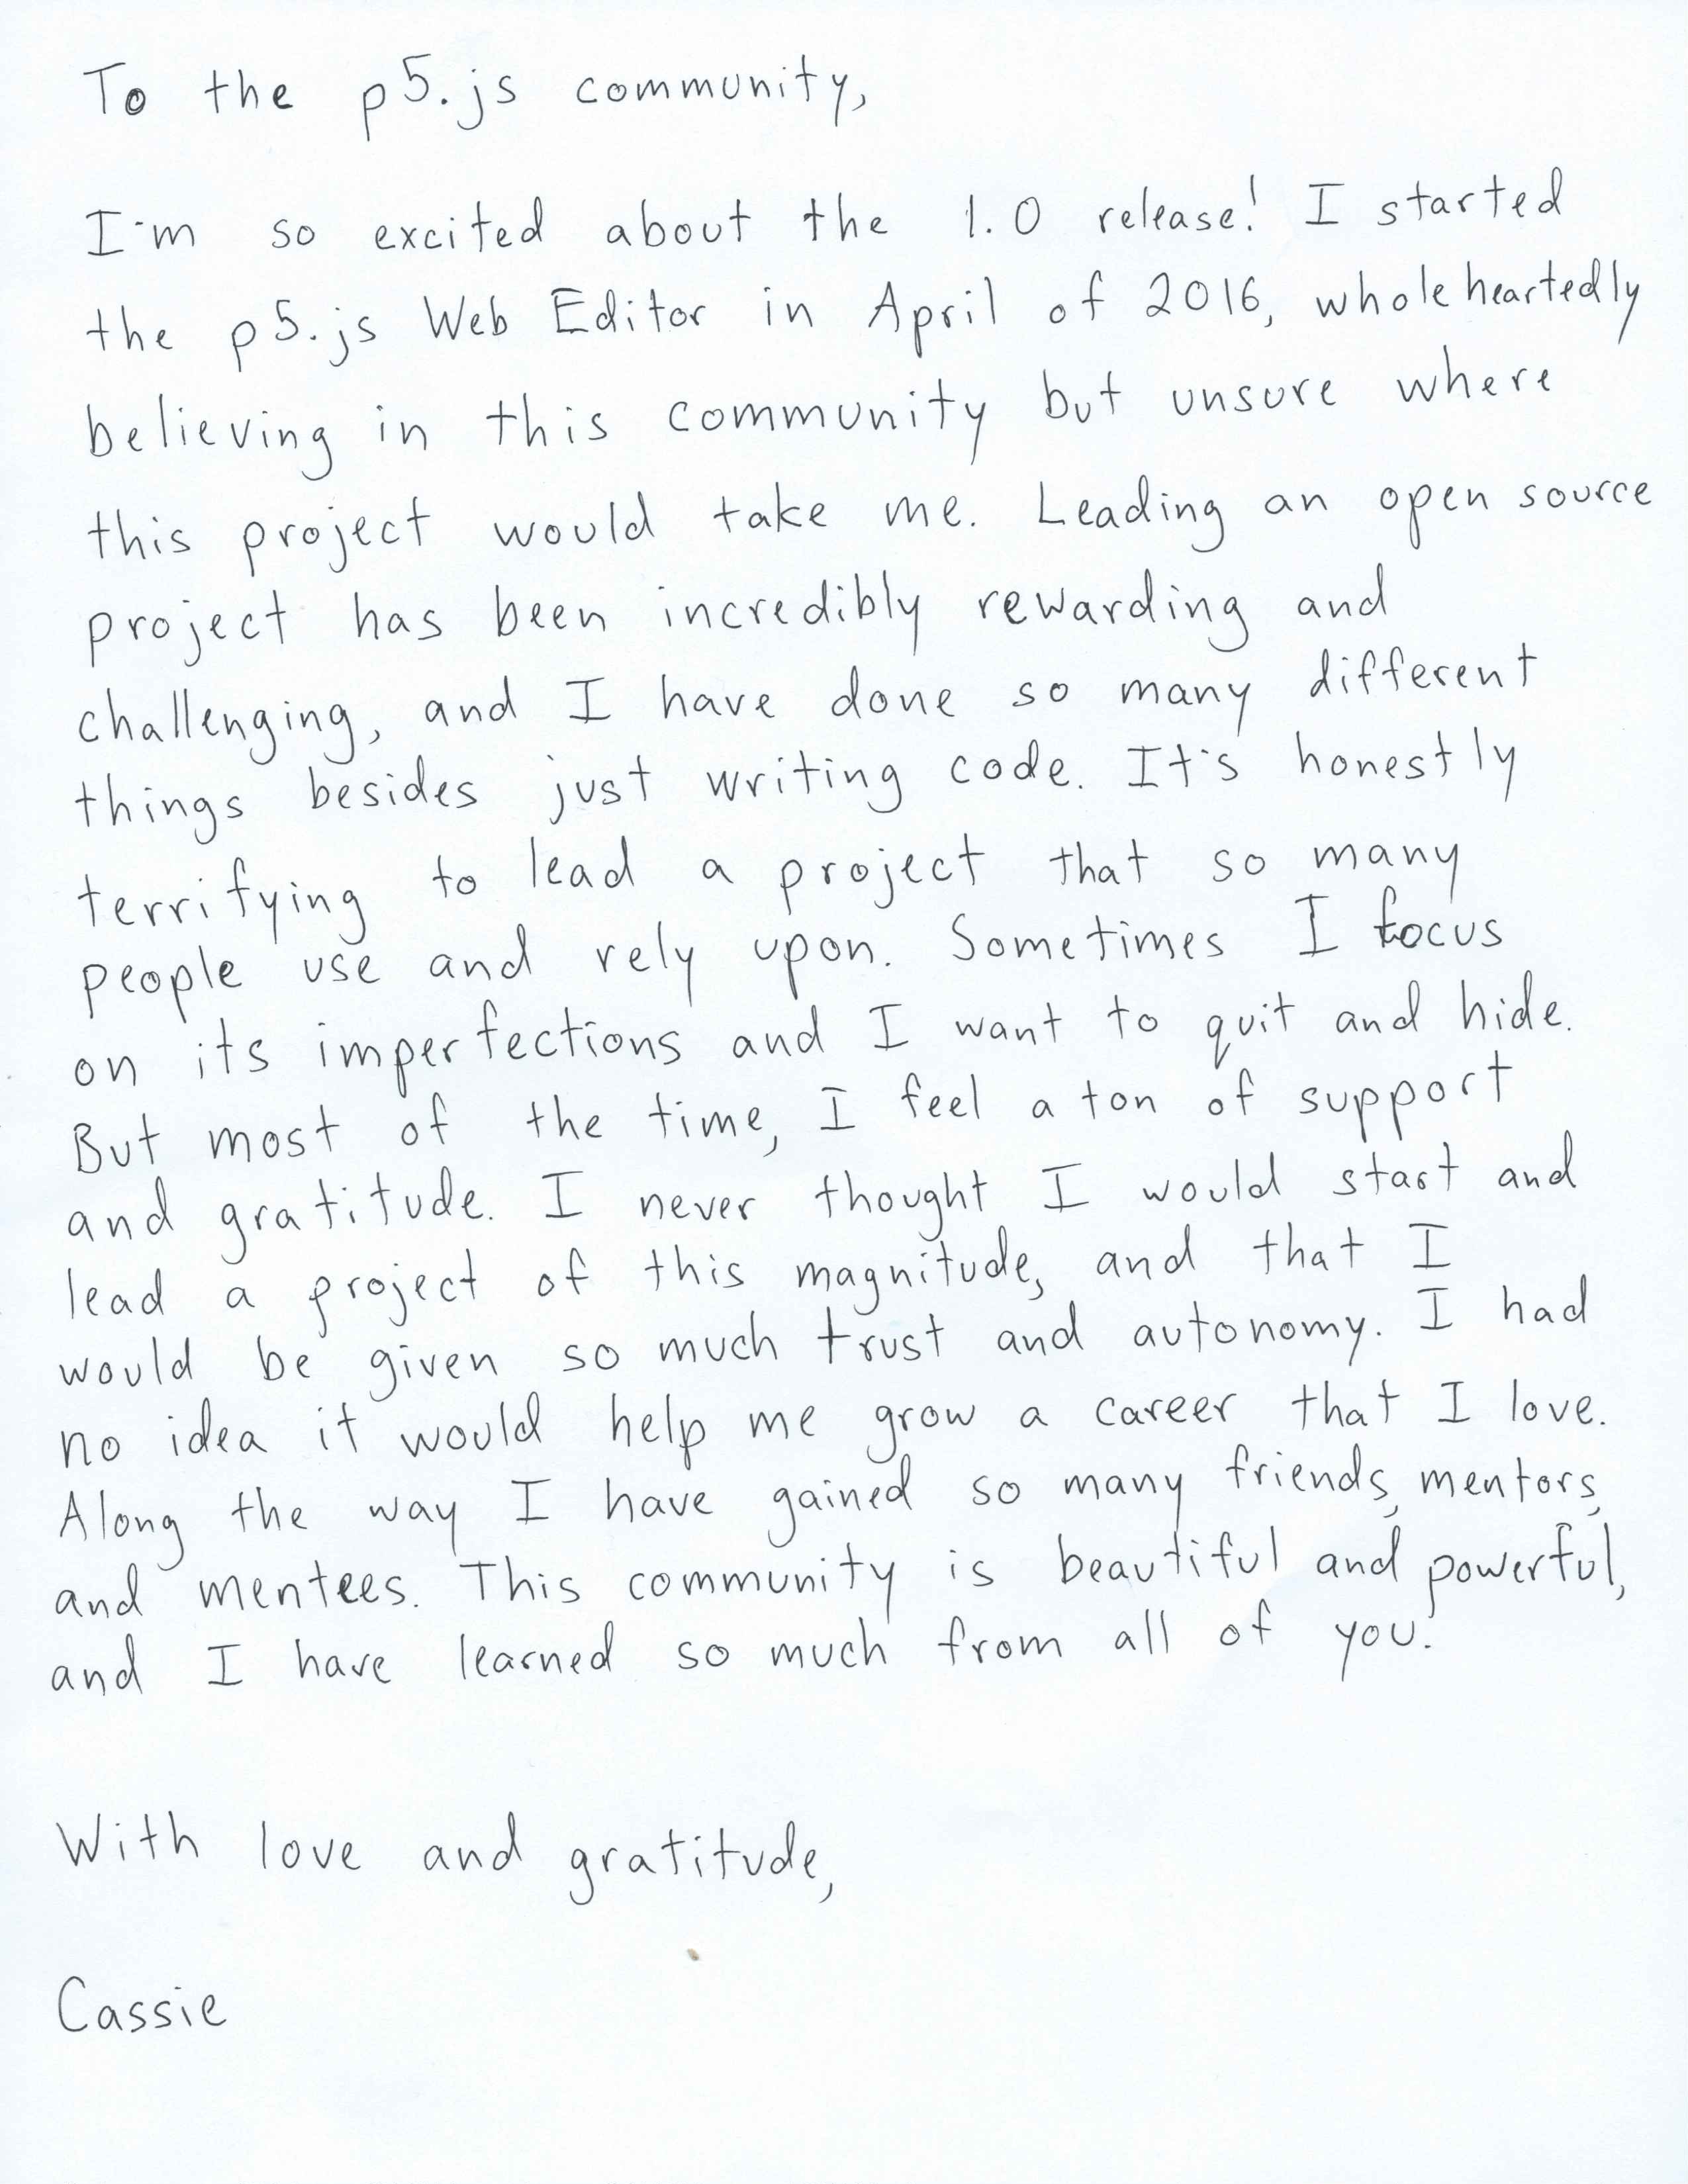 To the p5.js community,
I'm so excited about the 1.0 release! I started
the p5.js Web Editor in April of 2016, wholeheartedly
believing in this community but unsure where
this project would take me. Leading an open source
project has been incredibly rewarding and
challenging, and I have done so many different
things besides just writing code. It's honestly
terrifying to lead a project that so many
people use and rely upon. Sometimes I focus
on its imperfections and I want to quit and hide.
But most of the time, I feel a ton of support
and gratitude. I never thought I would start and
lead a project of this magnitude, and that I
would be given so much trust and autonomy. I had
no idea it would help me grow a career that I love.
Along the way I have gained so many friends, mentors,
and mentees. This community is beautiful and powerful,
and I have learned so much from all of you.
With love and gratitude,
Cassie